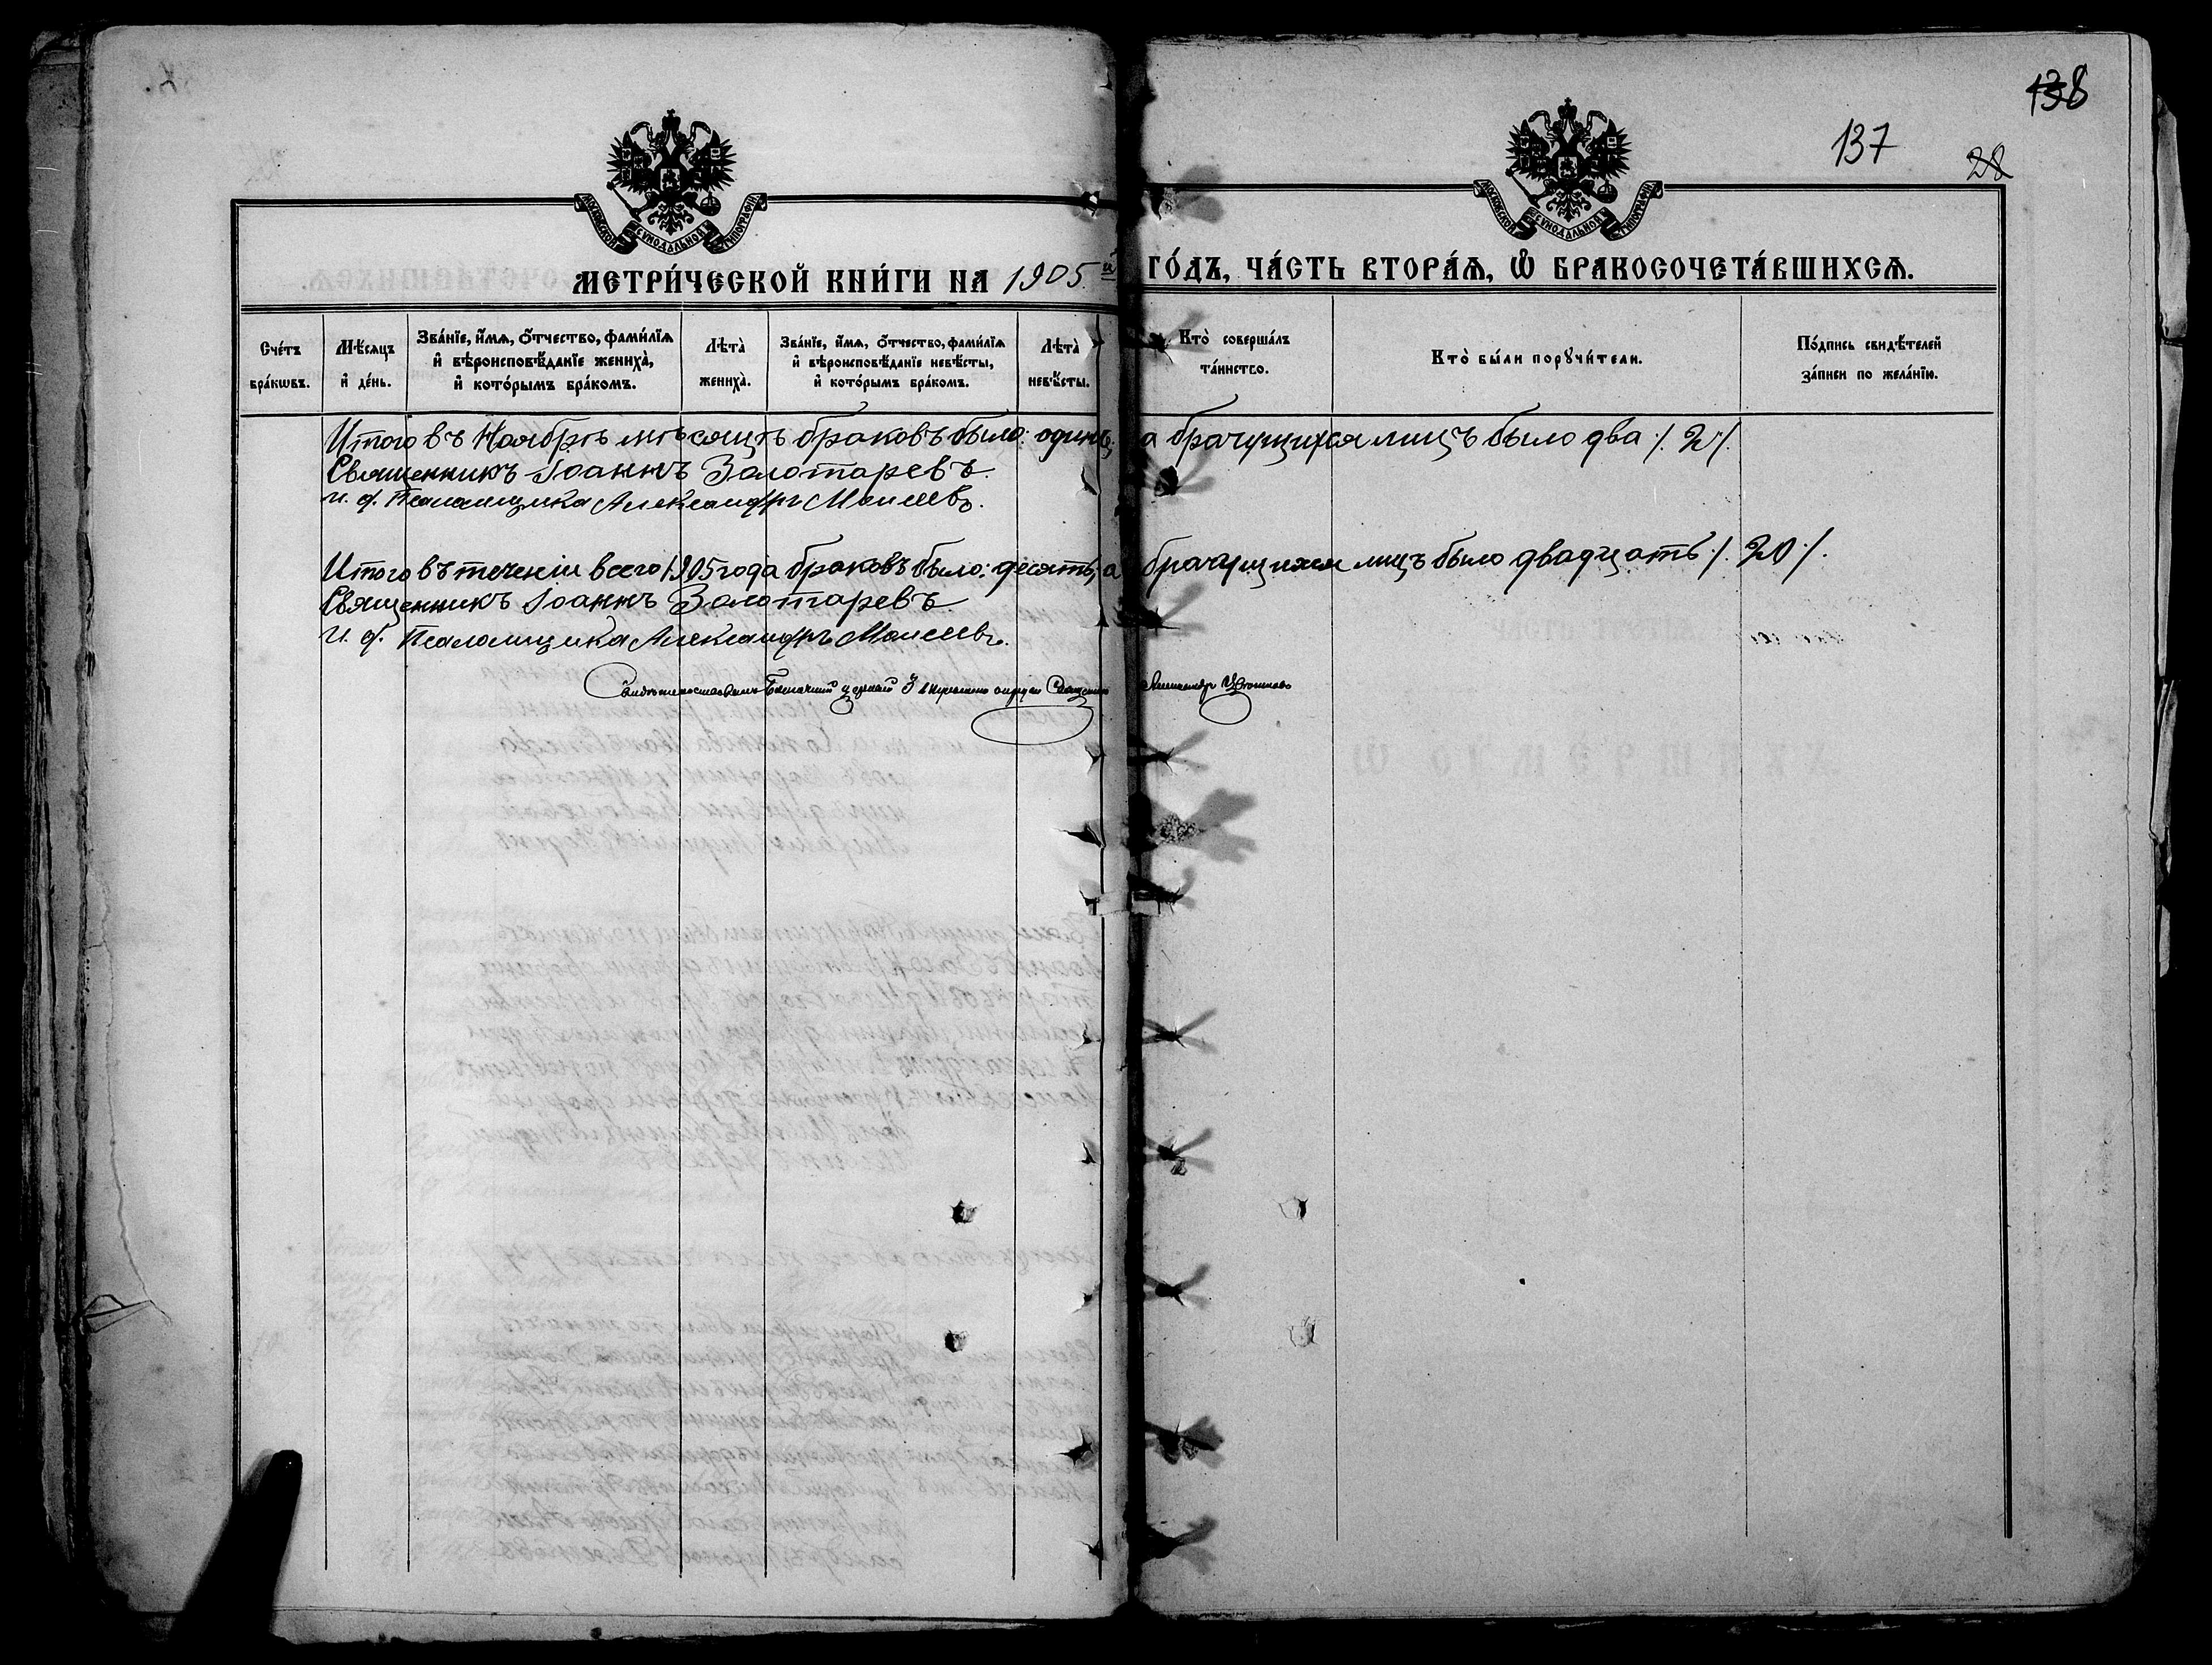 138
137
28
МОСКОВСКОЙ СУНОДАЛЬНОЙ ТИПОГРАФІИ
МОСКОВСКОЙ СУНОДАЛЬНОЙ ТИПОГРАФІИ
МЕТРИ́ЧЕСКОЙ КНИ́ГИ НА 1905й ГО́ДЪ, ЧА́СТЬ ВТОРА́Ѧ, Ѡ҆ БРАКОСОЧЕТА́ВШИХСѦ.
Сче́тъ бра́кѡвъ.
Мѣ́сяцъ и҆ де́нь.
Зва́нїе, и҆́мя, ѻ҆́тчество, фами́лїя и҆ вѣроисповѣ́данїе жениха̀, и҆ кото́рымъ бра́комъ.
Лѣта̀ жениха̀.
Зва́нїе, и҆́мя, ѻ҆́тчество, фами́лїя и҆ вѣроисповѣ́данїе невѣ́сты, и҆ кото́рымъ бра́комъ.
Лѣта̀ невѣ́сты.
Кто̀ соверша́лъ та́инство.
Кто̀ бы́ли порꙋчи́тели.
По́дпись свидѣ́телей за́писи по жела́нїю.
Итого въ Ноябрѣ мѣсяцѣ браковъ было: одинъ, а брачущихся лицъ было два /. 2 /.
Священникъ Іоаннъ Золотаревъ.
и. д. Псаломщика Александръ Моисеевъ.
Итого въ теченіи всего 1905 года браковъ было: десять, а брачущихся лицъ было двадцать ./. 20 ./.
Священникъ Іоаннъ Золотаревъ
И. д. Псаломщика Александръ Моисеевъ.
Свидѣтельствовалъ Благочинный 3 округа Священникъ Александръ